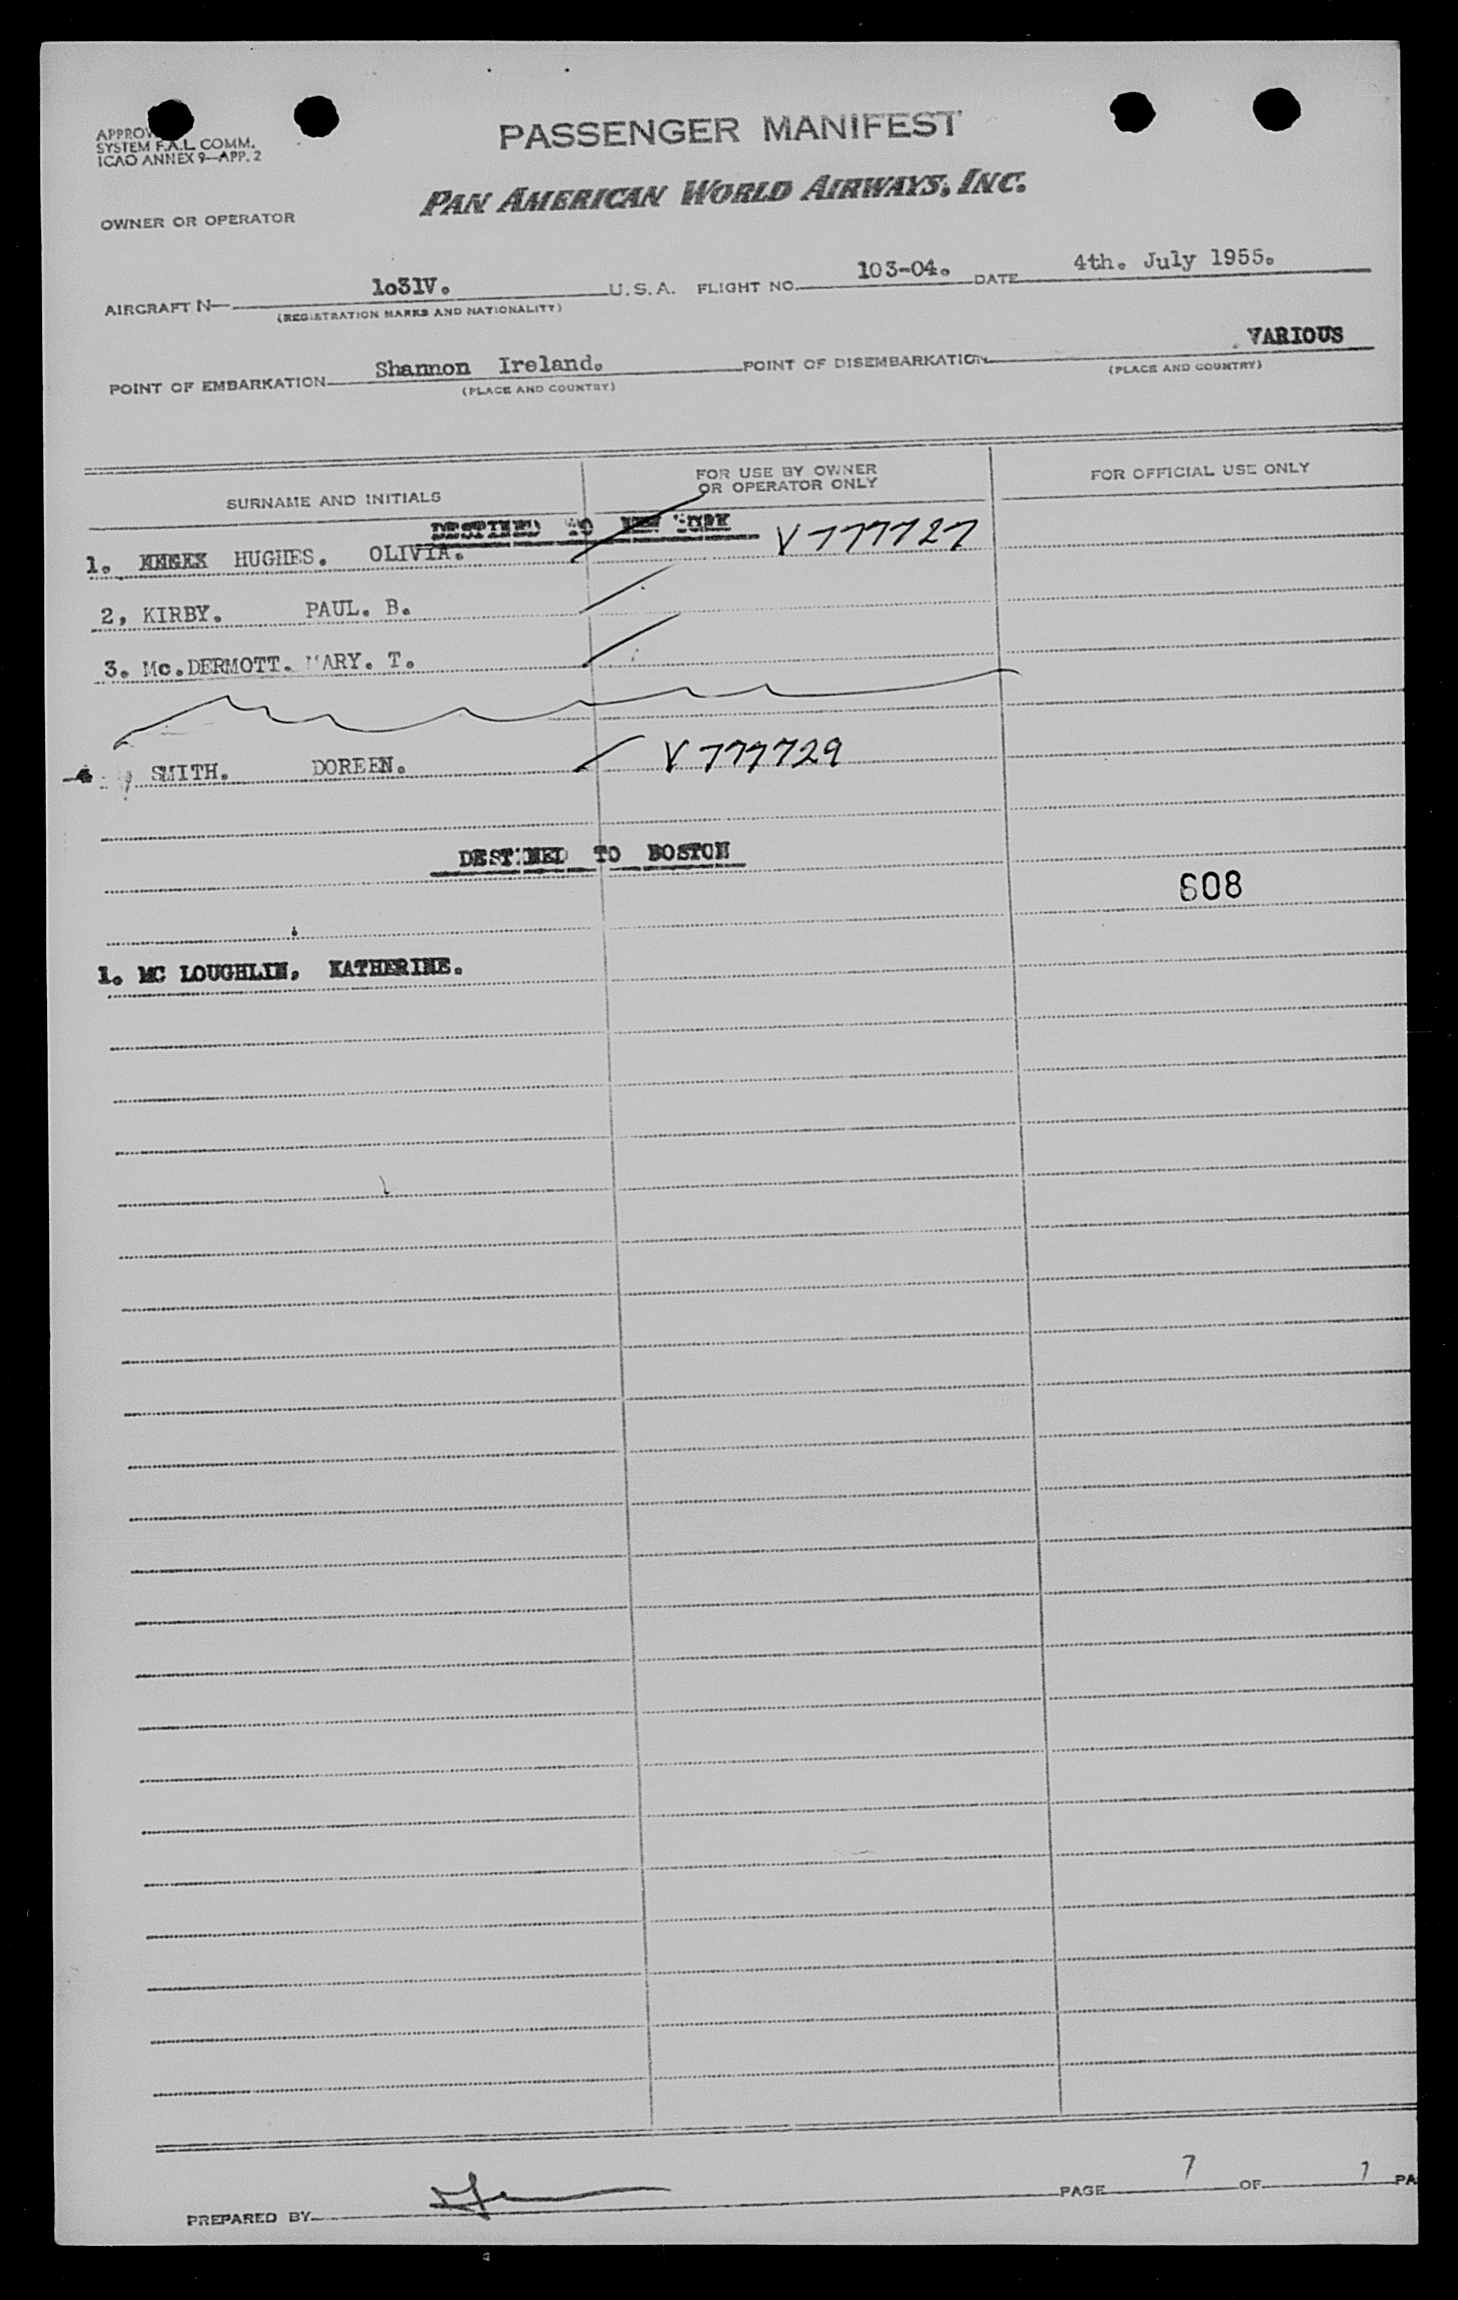 PASSENGER MANIFEST
SYSTEM F.A.L. COMM.
ICAO ANNEX 9—APP. 2
PAN AMERICAN WORLD AIRWAYS, INC.
OWNER OR OPERATOR
AIRCRAFT N— 1o31V. U.S.A. FLIGHT NO. 103-04. DATE 4th. July 1955.
(REGISTRATION MARKS AND NATIONALITY)
POINT OF EMBARKATION Shannon Ireland. POINT OF DISEMBARKATION VARIOUS
(PLACE AND COUNTRY) (PLACE AND COUNTRY)
SURNAME AND INITIALS FOR USE BY OWNER OR OPERATOR ONLY FOR OFFICIAL USE ONLY
DESTINED TO NEW YORK
1. HUGHES. OLIVIA. V777727
2, KIRBY. PAUL. B.
3. Mc.DERMOTT. MARY. T.
4 SMITH. DOREEN. V777729
DESTINED TO BOSTON
608
1. MC LOUGHLIN, KATHERINE.
PREPARED BY PAGE 7 OF 7 PA